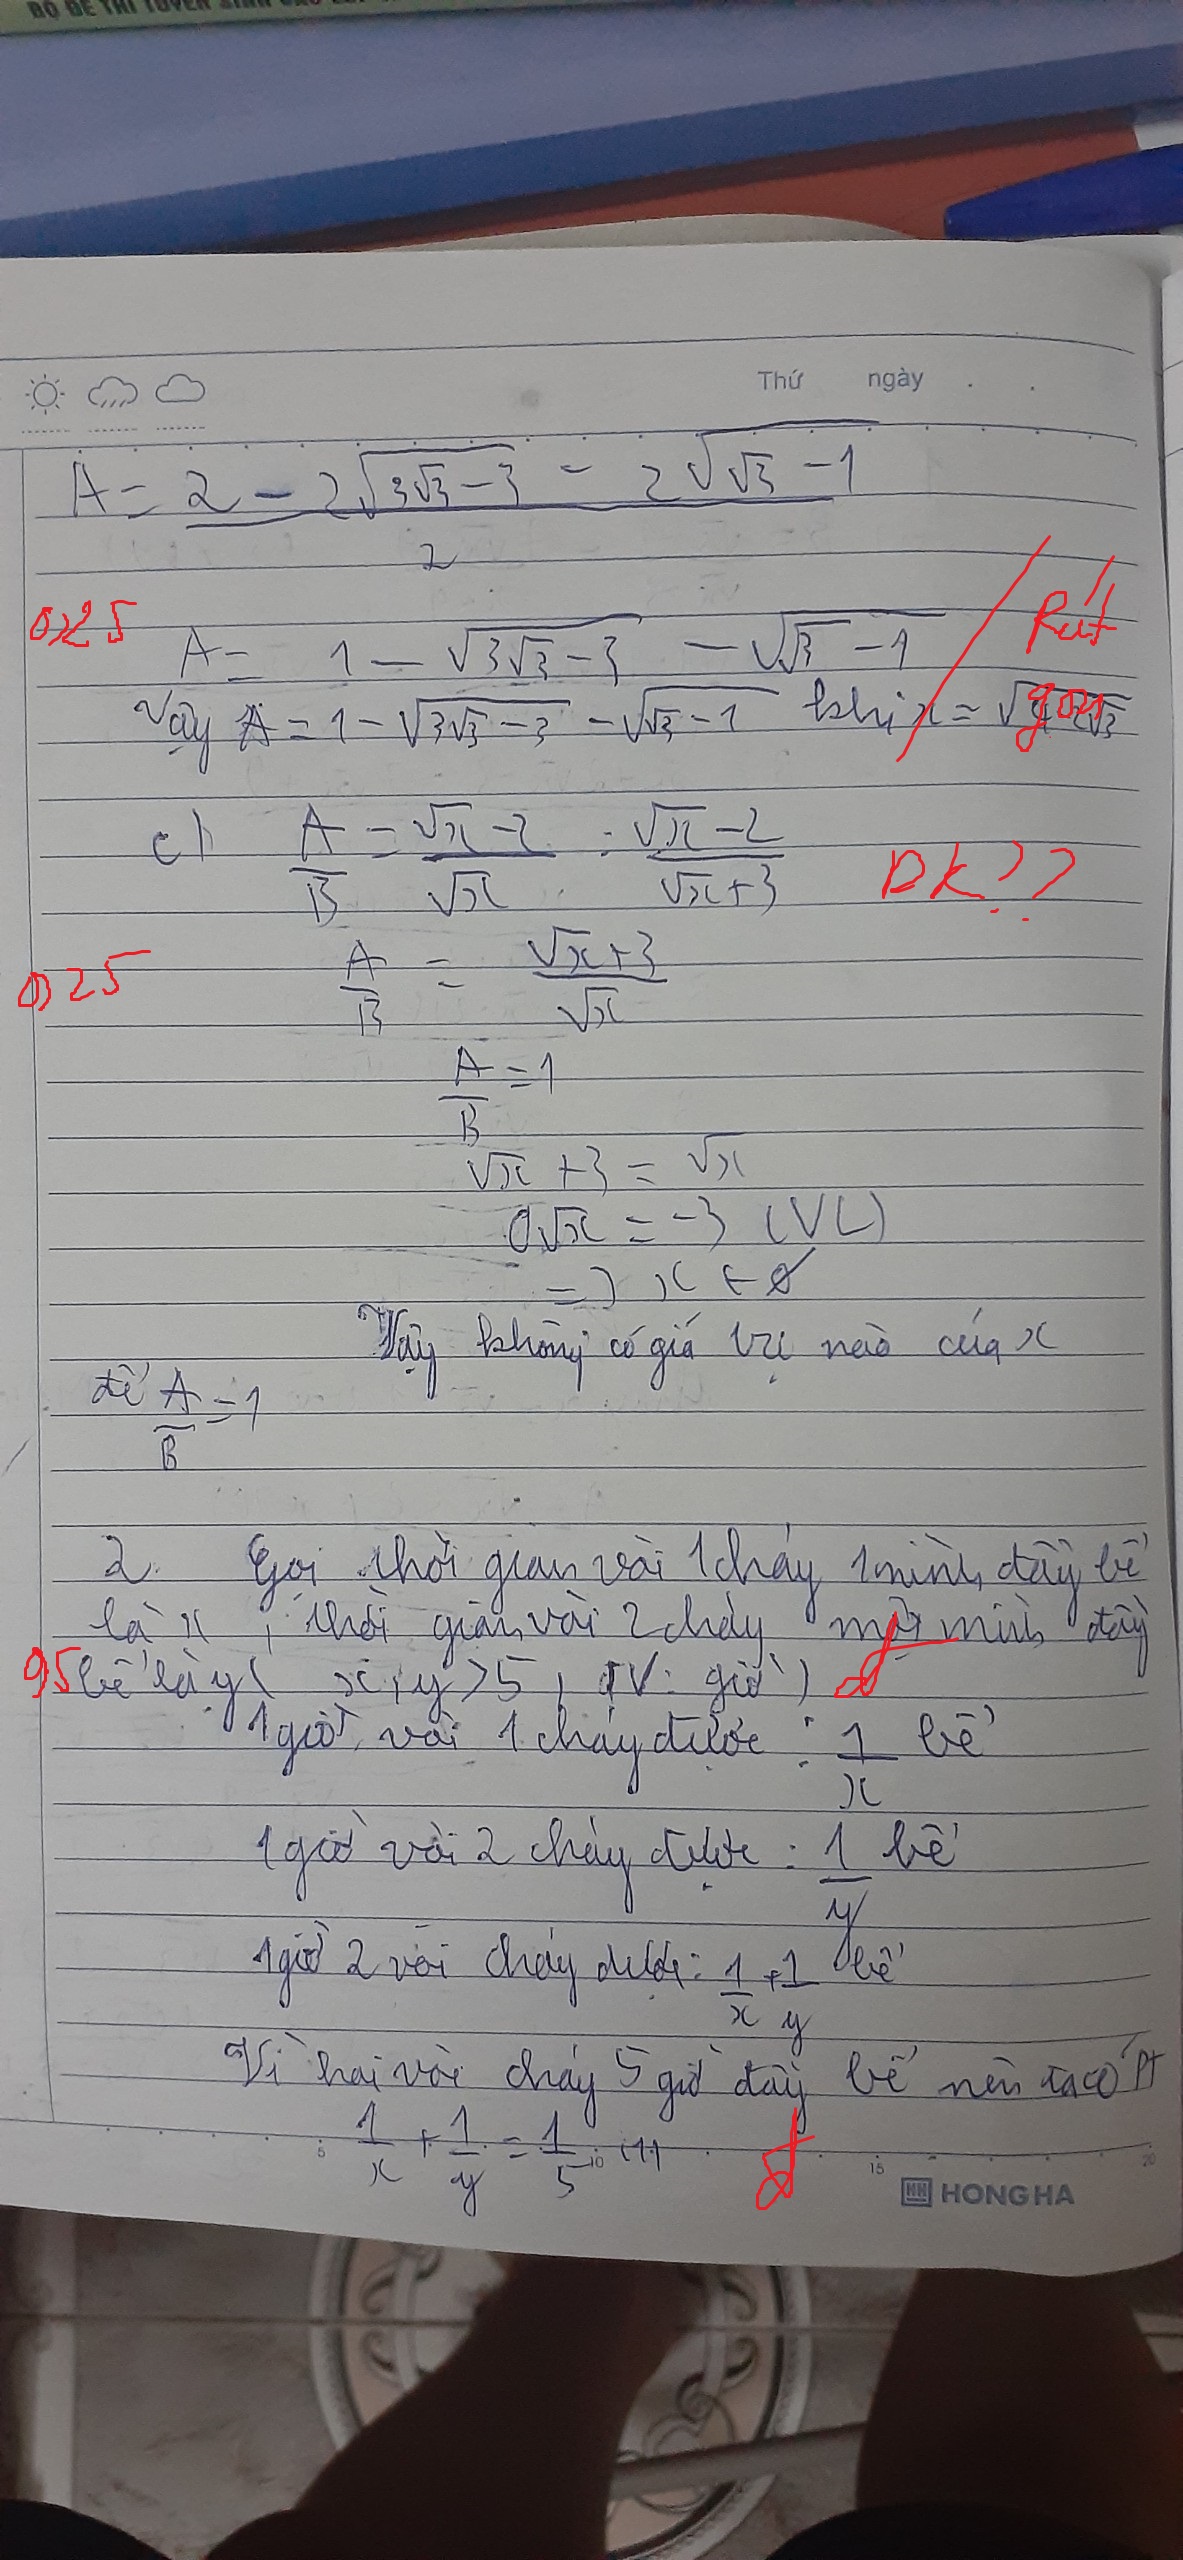 BỘ ĐỀ THI TUYỂN SINH
Thứ ngày
A = 2 - 2√(3√3 - 3) - 2√(√3 - 1)
2
0,25
A = 1 - √(3√3 - 3) - √(√3 - 1)
Rút gọn
Vậy A = 1 - √(3√3 - 3) - √(√3 - 1) khi x =
c) A/B = (√x - 2)/√x : (√x - 2)/(√x + 3)
ĐK??
0,25
A/B = (√x + 3)/√x
A/B = 1
√x + 3 = √x
0√x = -3 (VL)
=> x ∈ ∅
Vậy không có giá trị nào của x
để A/B = 1
2. Gọi thời gian vòi 1 chảy 1 mình đầy bể
là x, thời gian vòi 2 chảy một mình đầy
bể là y ( x, y > 5, ĐV: giờ) đ
1 giờ vòi 1 chảy được: 1/x bể
1 giờ vòi 2 chảy được: 1/y bể
1 giờ 2 vòi chảy được: 1/x + 1/y bể
Vì hai vòi chảy 5 giờ đầy bể nên ta có PT
1/x + 1/y = 1/5 (1) đ
5 10 15 20
HONG HA